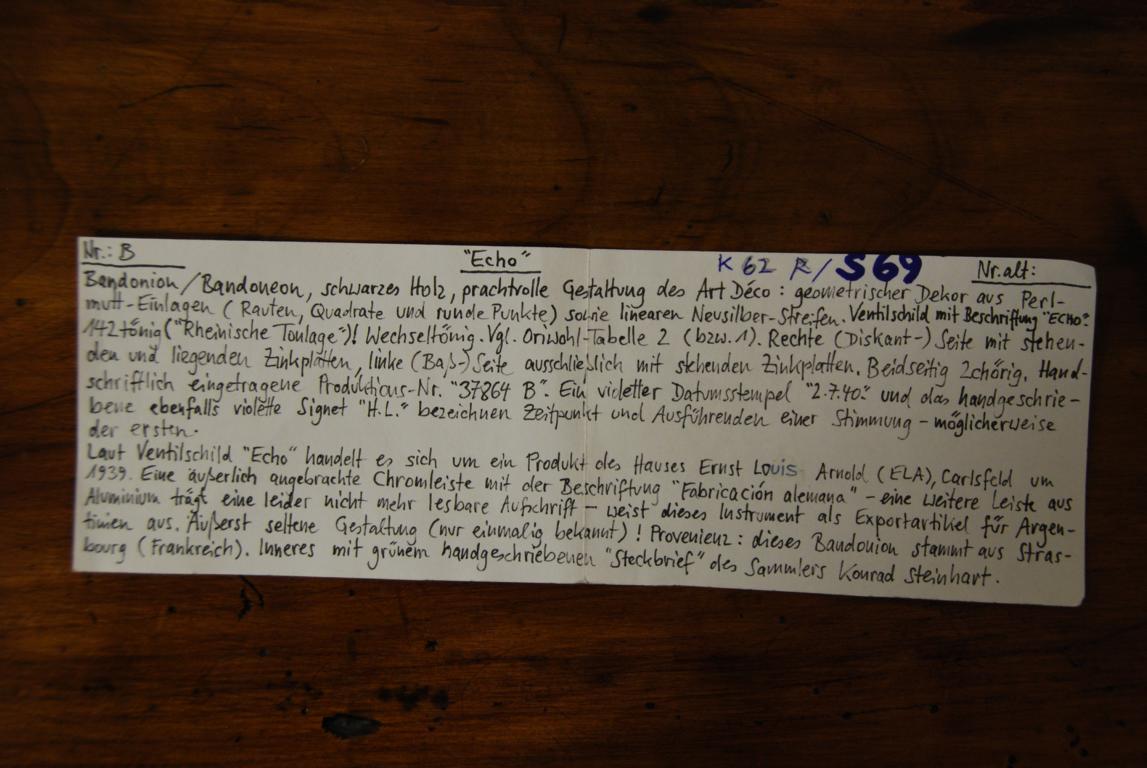 Nr.: B "Echo" K 62 R/S69 Nr. alt:
Bandonion/Bandoneon, schwarzes Holz, prachtvolle Gestaltung des Art Déco: geometrischer Dekor aus Perl-
mutt-Einlagen (Rauten, Quadrate und runde Punkte) sowie linearen Neusilber-Streifen. Ventilschild mit Beschriftung "ECHO".
142tönig ("Rheinische Tonlage")! Wechseltönig. Vgl. Oriwohl-Tabelle 2 (bzw. 1). Rechte (Diskant-) Seite mit stehen-
den und liegenden Zinkplatten, linke (Baß-) Seite ausschließlich mit stehenden Zinkplatten. Beidseitig 2chörig. Hand-
schriftlich eingetragene Produktions-Nr. "37864 B". Ein violetter Datumsstempel "2.7.40." und das handgeschrie-
bene ebenfalls violette Signet "H.L." bezeichnen Zeitpunkt und Ausführenden einer Stimmung – möglicherweise
der ersten.
Laut Ventilschild "Echo" handelt es sich um ein Produkt des Hauses Ernst Louis Arnold (ELA), Carlsfeld um
1939. Eine äußerlich angebrachte Chromleiste mit der Beschriftung "Fabricación alemana" – eine weitere Leiste aus
Aluminium trägt eine leider nicht mehr lesbare Aufschrift – weist dieses Instrument als Exportartikel für Argen-
tinien aus. Äußerst seltene Gestaltung (nur einmalig bekannt)! Provenienz: dieses Bandonion stammt aus Stras-
bourg (Frankreich). Inneres mit grünem handgeschriebenen "Steckbrief" des Sammlers Konrad Steinhart.